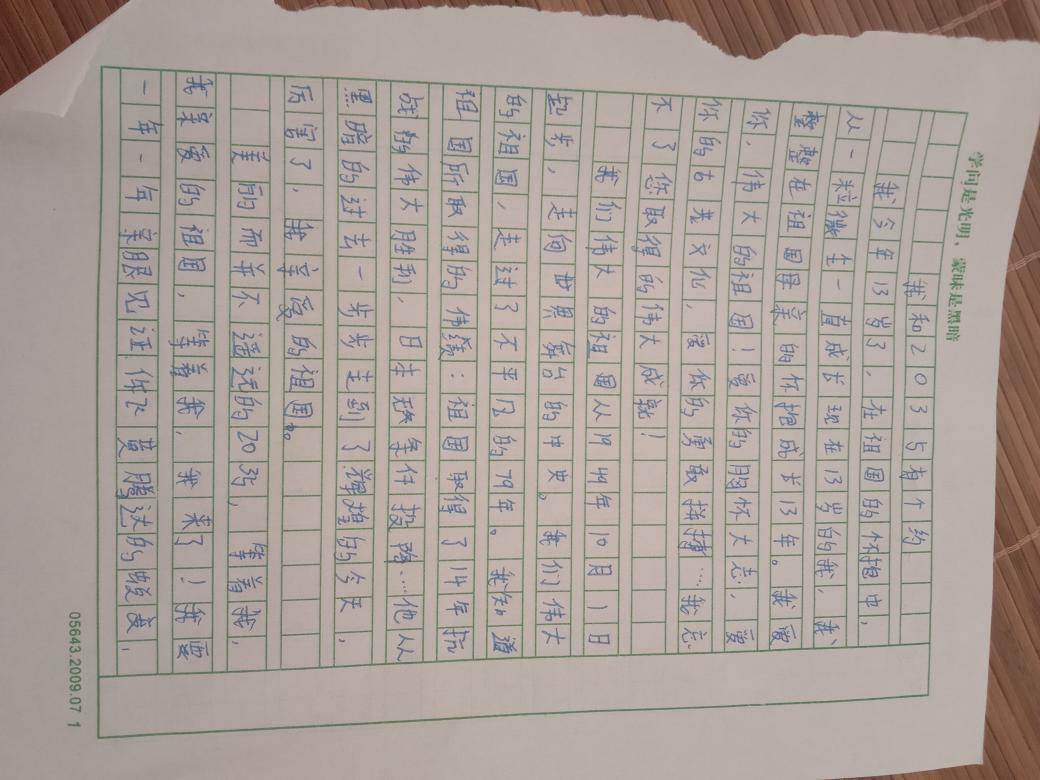 学问是光明，蒙昧是黑暗
我和2035有个约
我今年13岁了，在祖国的怀抱中，
从一粒微生一直成长到现在13岁的我，我
整整在祖国母亲的怀抱成长13年。我爱
你，伟大的祖国！爱你的胸怀大志，爱
你的古老文化，爱你的勇敢拼搏…我忘
不了您取得的伟大成就！
我们伟大的祖国从1949年10月1日
起步，走向世界舞台的中央。我们伟大
的祖国，走过了不平凡的79年。我知道
祖国所取得的伟绩：祖国取得了14年抗
战的伟大胜利，日本无条件投降…他从
黑暗的过去一步步走到了辉煌的今天，
厉害了，我亲爱的祖国。
美丽而并不遥远的2035，等着我，
我亲爱的祖国，等着我，我来了！我要
一年一年亲眼见证你飞黄腾达的